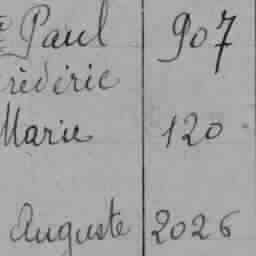 Paul 907
rédéric
Marie 120
Auguste 2026